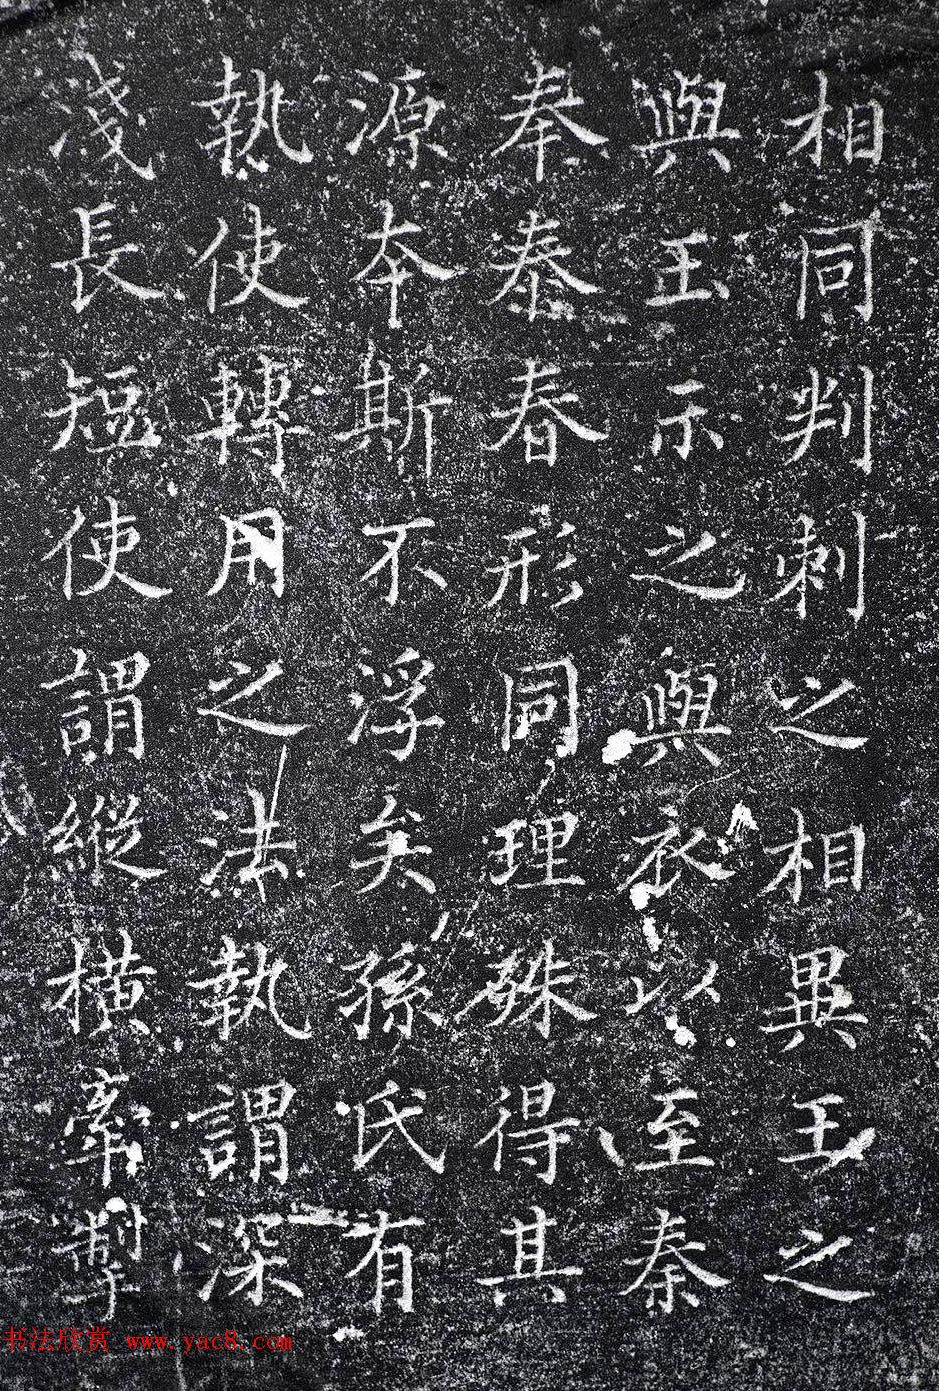 相同判刺之相異王之
與玉示之與衣以至秦
奉泰春形同理殊得其
源本斯不浮矣孫氏有
執使轉用之法執謂深
淺長短使謂縱橫牽掣
书法欣赏 www.yac8.com